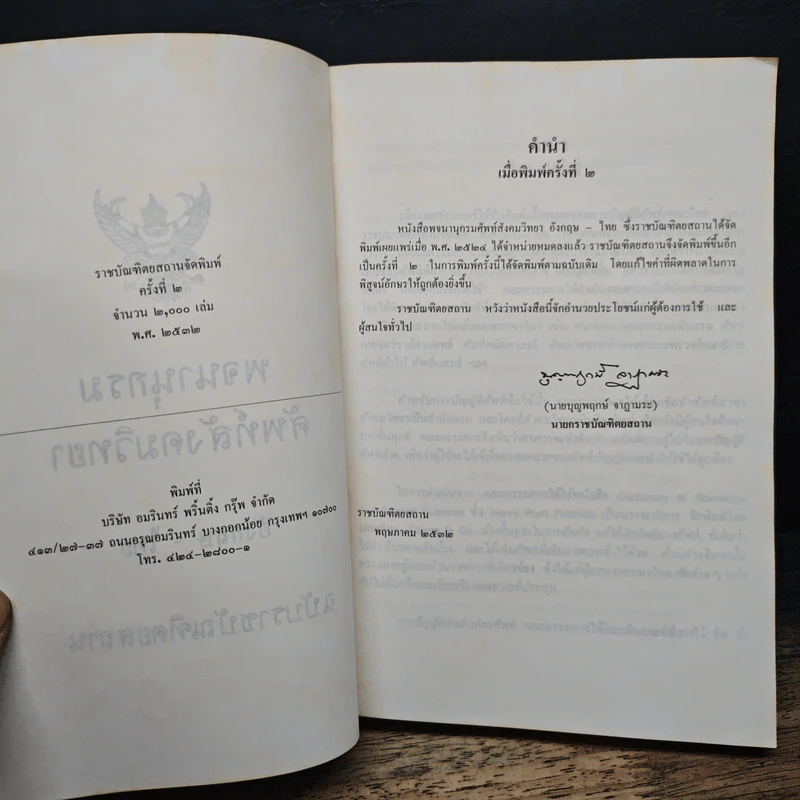 ราชบัณฑิตยสถานจัดพิมพ์
ครั้งที่ ๒
จำนวน ๒,๐๐๐ เล่ม
พ.ศ. ๒๕๓๒
พิมพ์ที่
บริษัท อมรินทร์ พริ้นติ้ง กรุ๊พ จำกัด
๔๑๓/๒๗-๓๗ ถนนอรุณอมรินทร์ บางกอกน้อย กรุงเทพฯ ๑๐๗๐๐
โทร. ๔๒๔-๒๘๐๐-๑
คำนำ
เมื่อพิมพ์ครั้งที่ ๒
หนังสือพจนานุกรมศัพท์สังคมวิทยา อังกฤษ – ไทย ซึ่งราชบัณฑิตยสถานได้จัด
พิมพ์เผยแพร่เมื่อ พ.ศ. ๒๕๒๔ ได้จำหน่ายหมดลงแล้ว ราชบัณฑิตยสถานจึงจัดพิมพ์ขึ้นอีก
เป็นครั้งที่ ๒ ในการพิมพ์ครั้งนี้ได้จัดพิมพ์ตามฉบับเดิม โดยแก้ไขคำที่ผิดพลาดในการ
พิสูจน์อักษรให้ถูกต้องยิ่งขึ้น
ราชบัณฑิตยสถาน หวังว่าหนังสือนี้จักอำนวยประโยชน์แก่ผู้ต้องการใช้ และ
ผู้สนใจทั่วไป
(นายบุญพฤกษ์ จาฏามระ)
นายกราชบัณฑิตยสถาน
ราชบัณฑิตยสถาน
พฤษภาคม ๒๕๓๒
พจนานุกรม
ศัพท์สังคมวิทยา
ฉบับราชบัณฑิตยสถาน